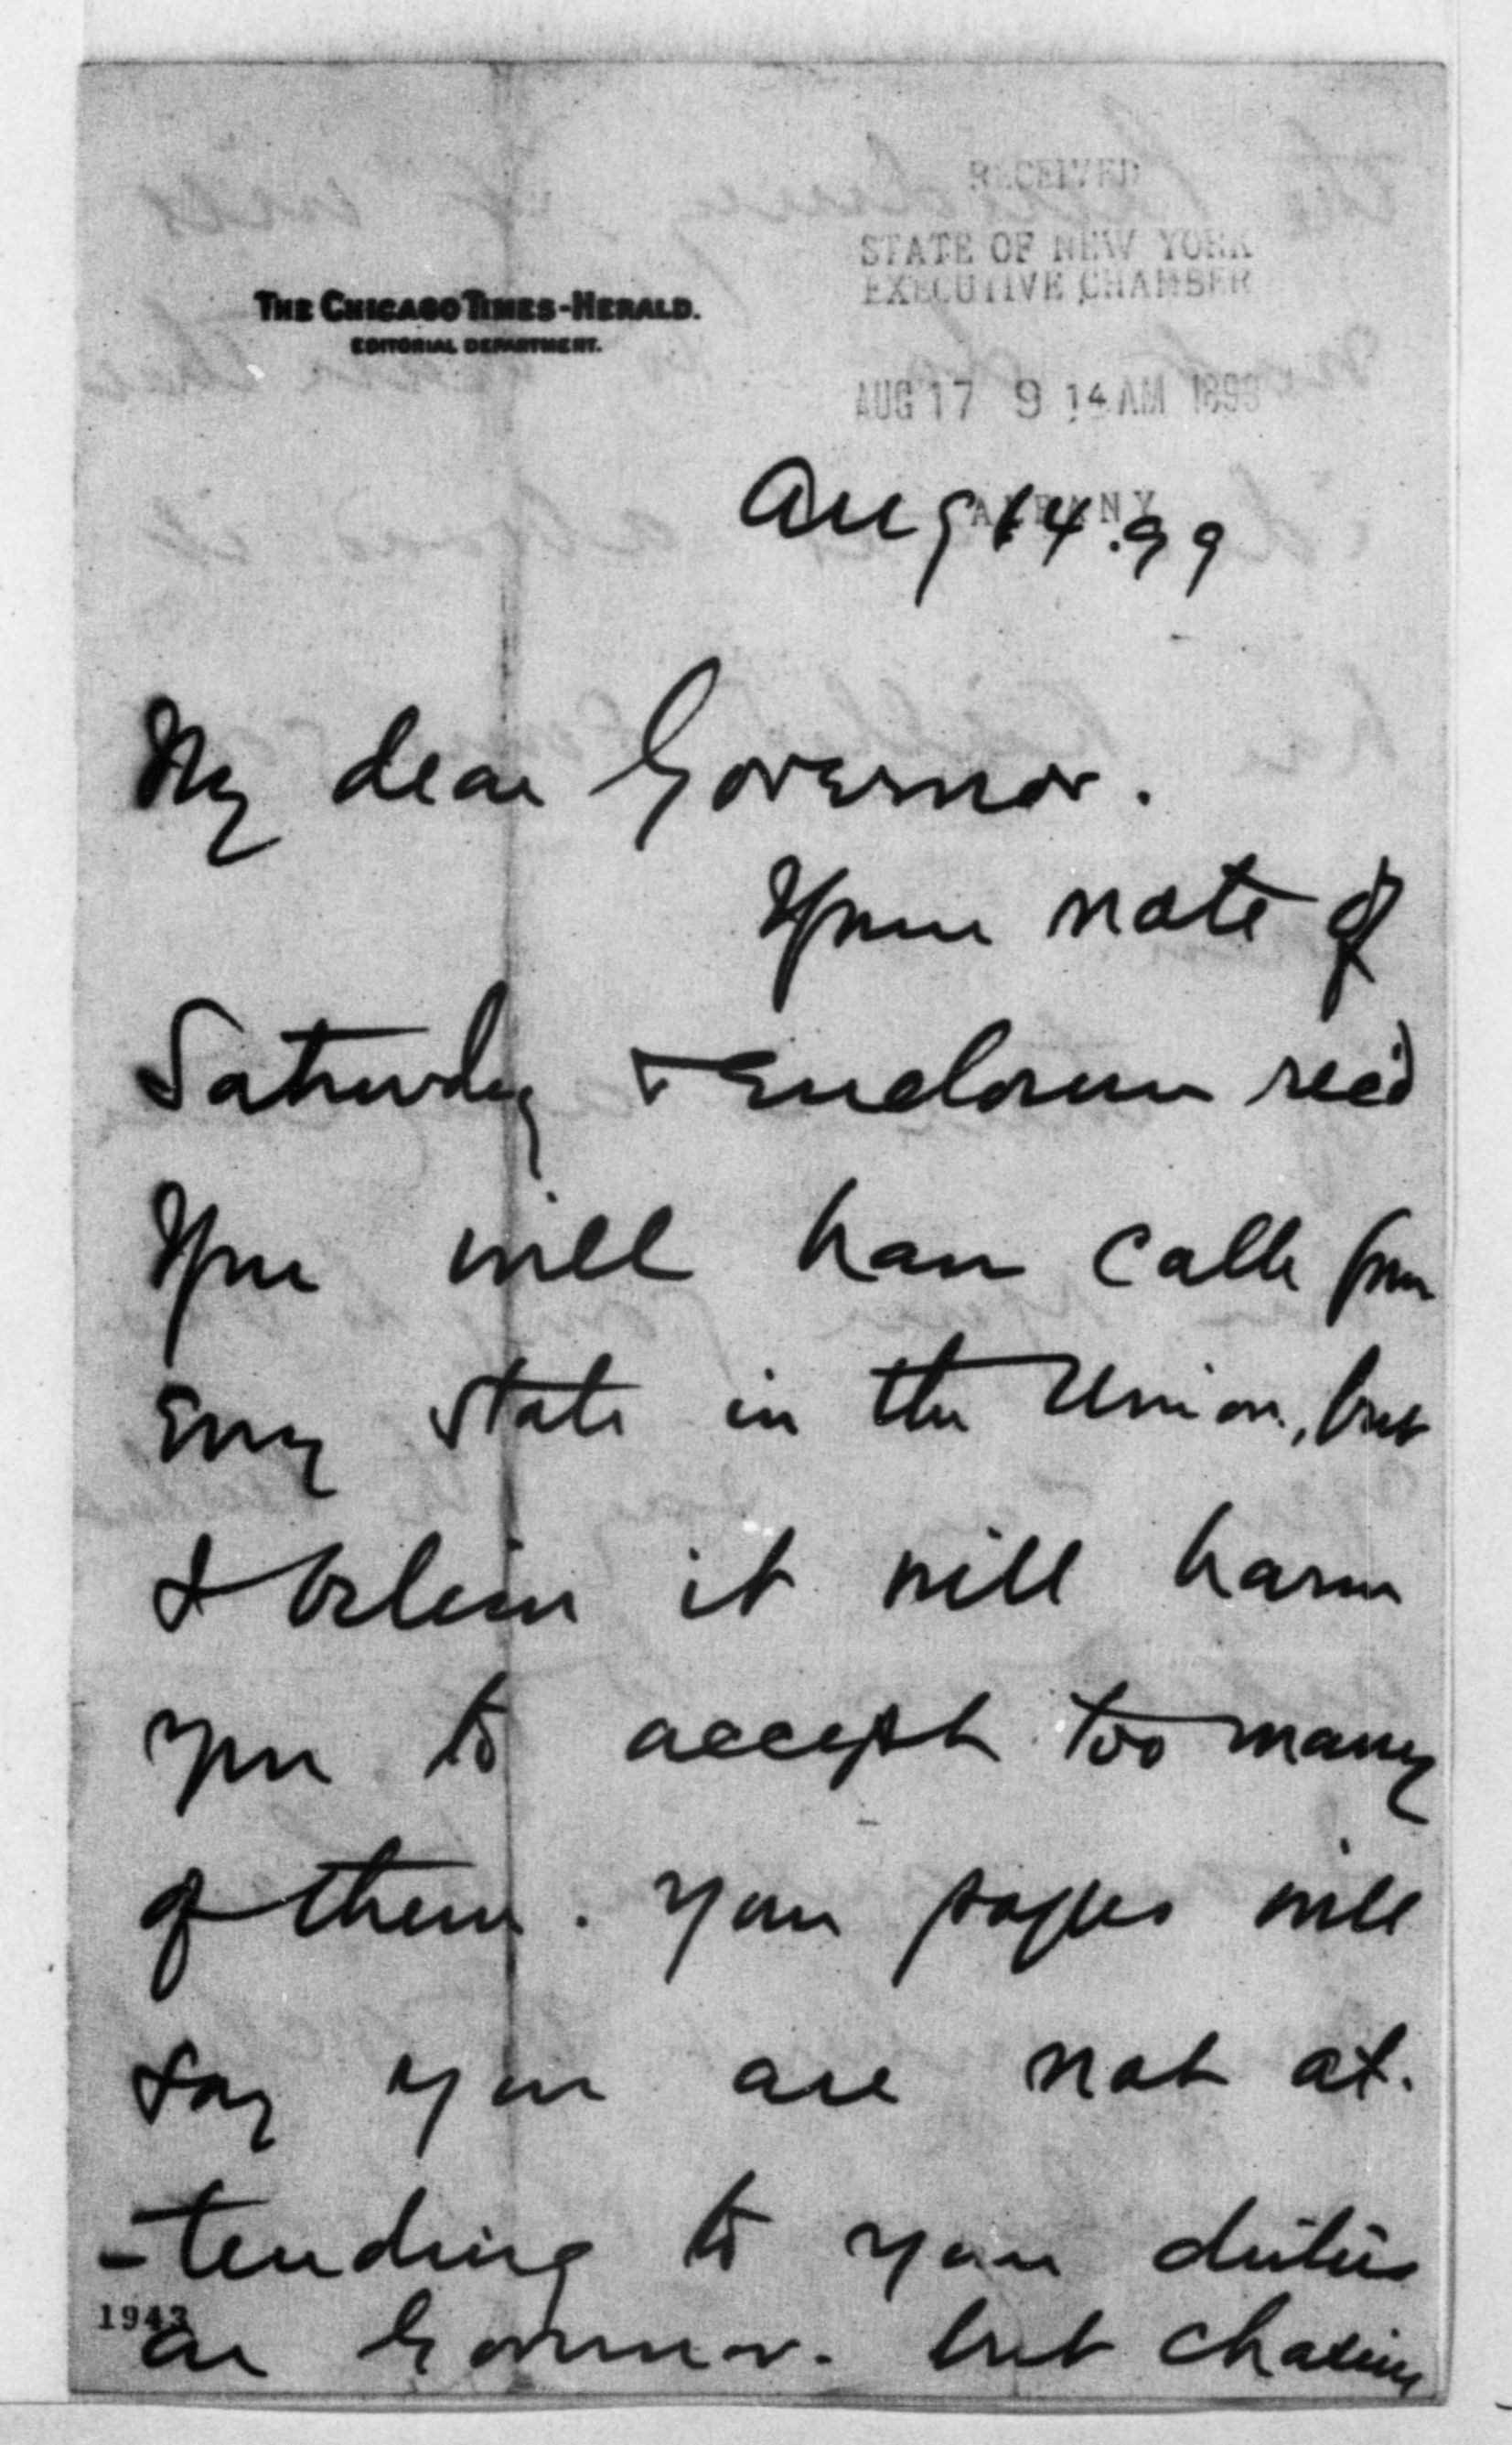 RECEIVED
STATE OF NEW YORK
EXECUTIVE CHAMBER
THE CHICAGO TIMES-HERALD.
EDITORIAL DEPARTMENT.
AUG 17 9 14 AM 1899
ALBANY
Aug 14. 99
My dear Governor.
Your note of
Saturday & Enclosure rec'd
You will have calls from
Every State in the Union, but
I believe it will harm
you to accept too many
of them. Your papers will
say you are not at-
-tending to your duties
as Governor. but chasing
1943